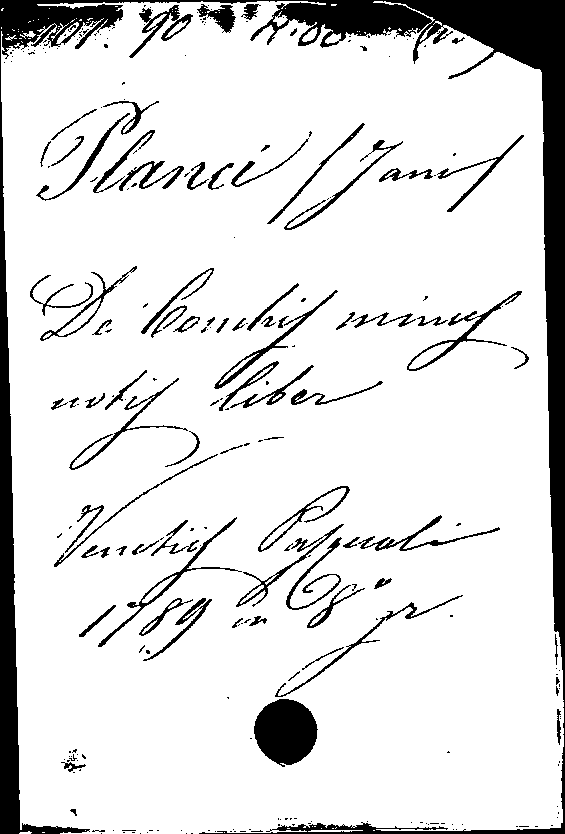 Planci /Jani/
De Conchis minus
notis liber
Venetiis Pasquali
1789 in 8° gr.